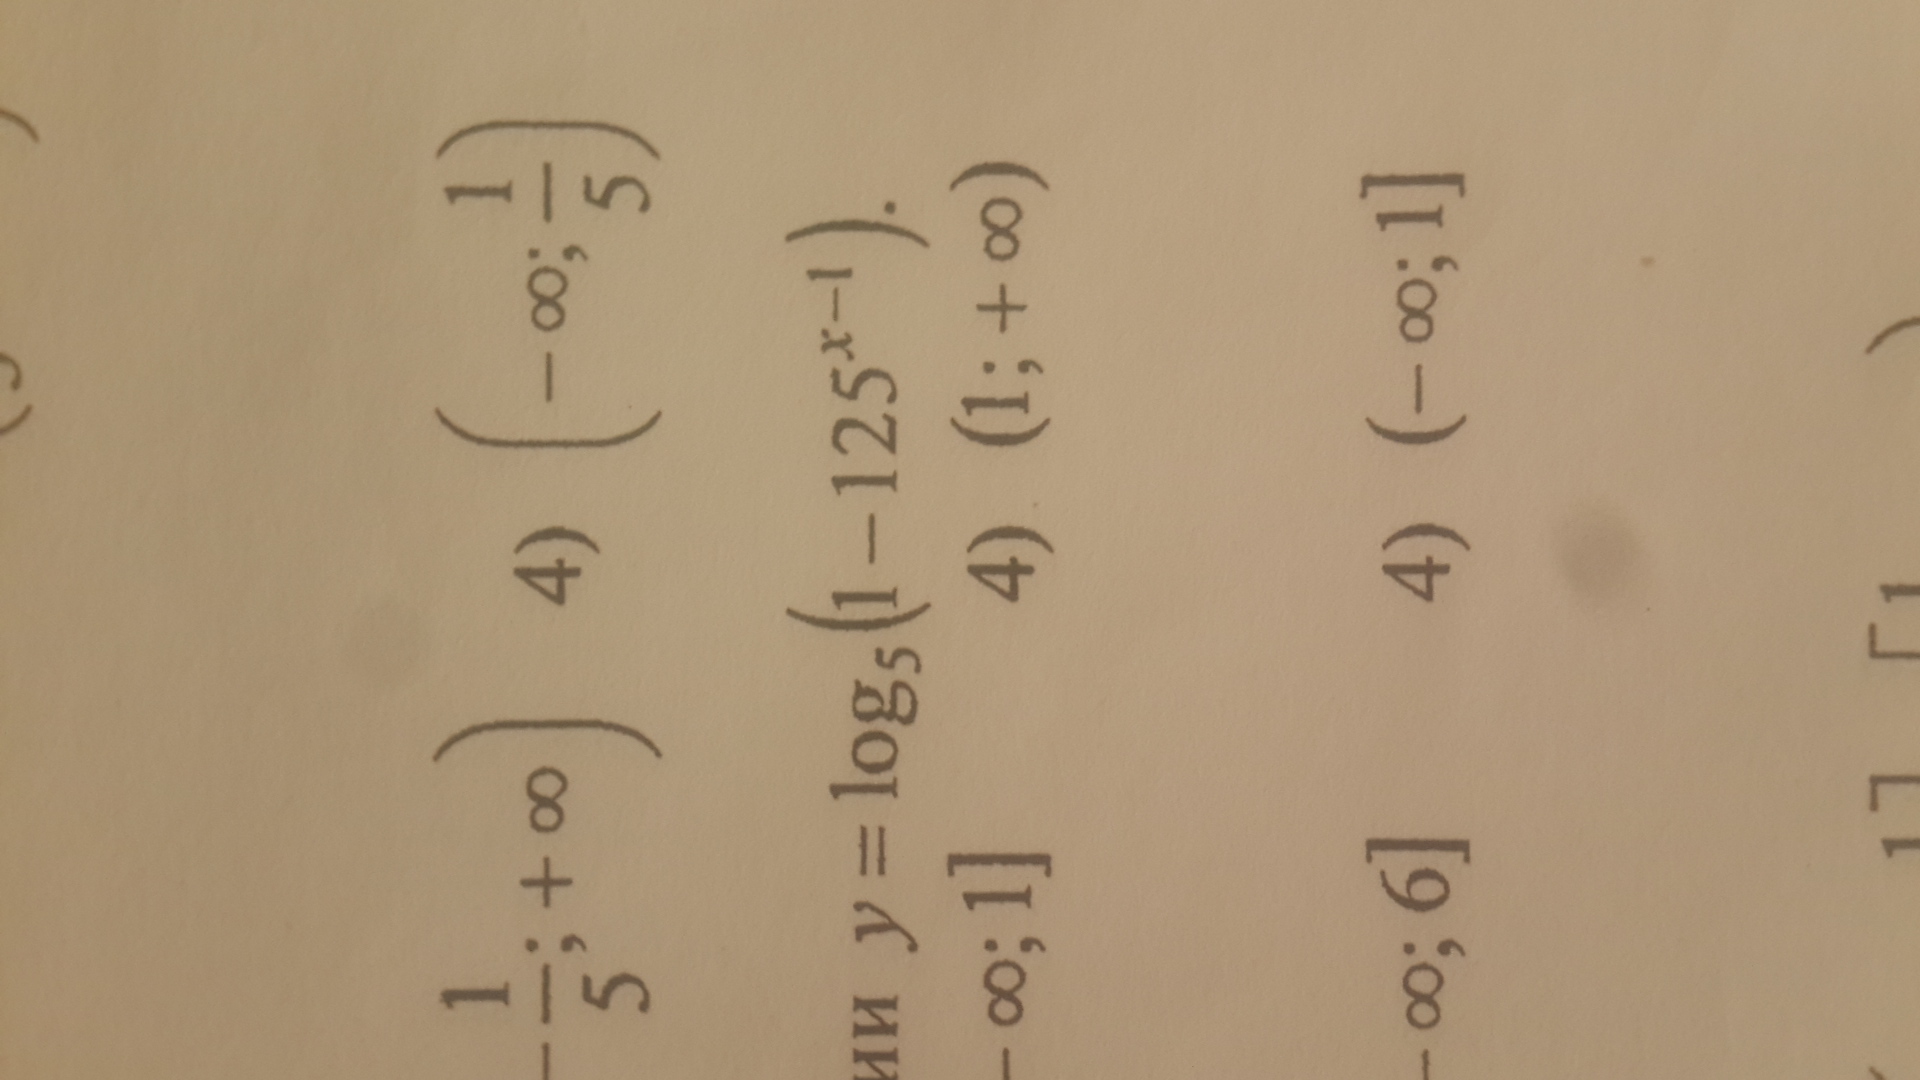 − 1/5; + ∞) 4) (− ∞; 1/5)
y = log₅(1 − 125ˣ⁻¹).
− ∞; 1] 4) (1; + ∞)
− ∞; 6] 4) (− ∞; 1]
1] [1